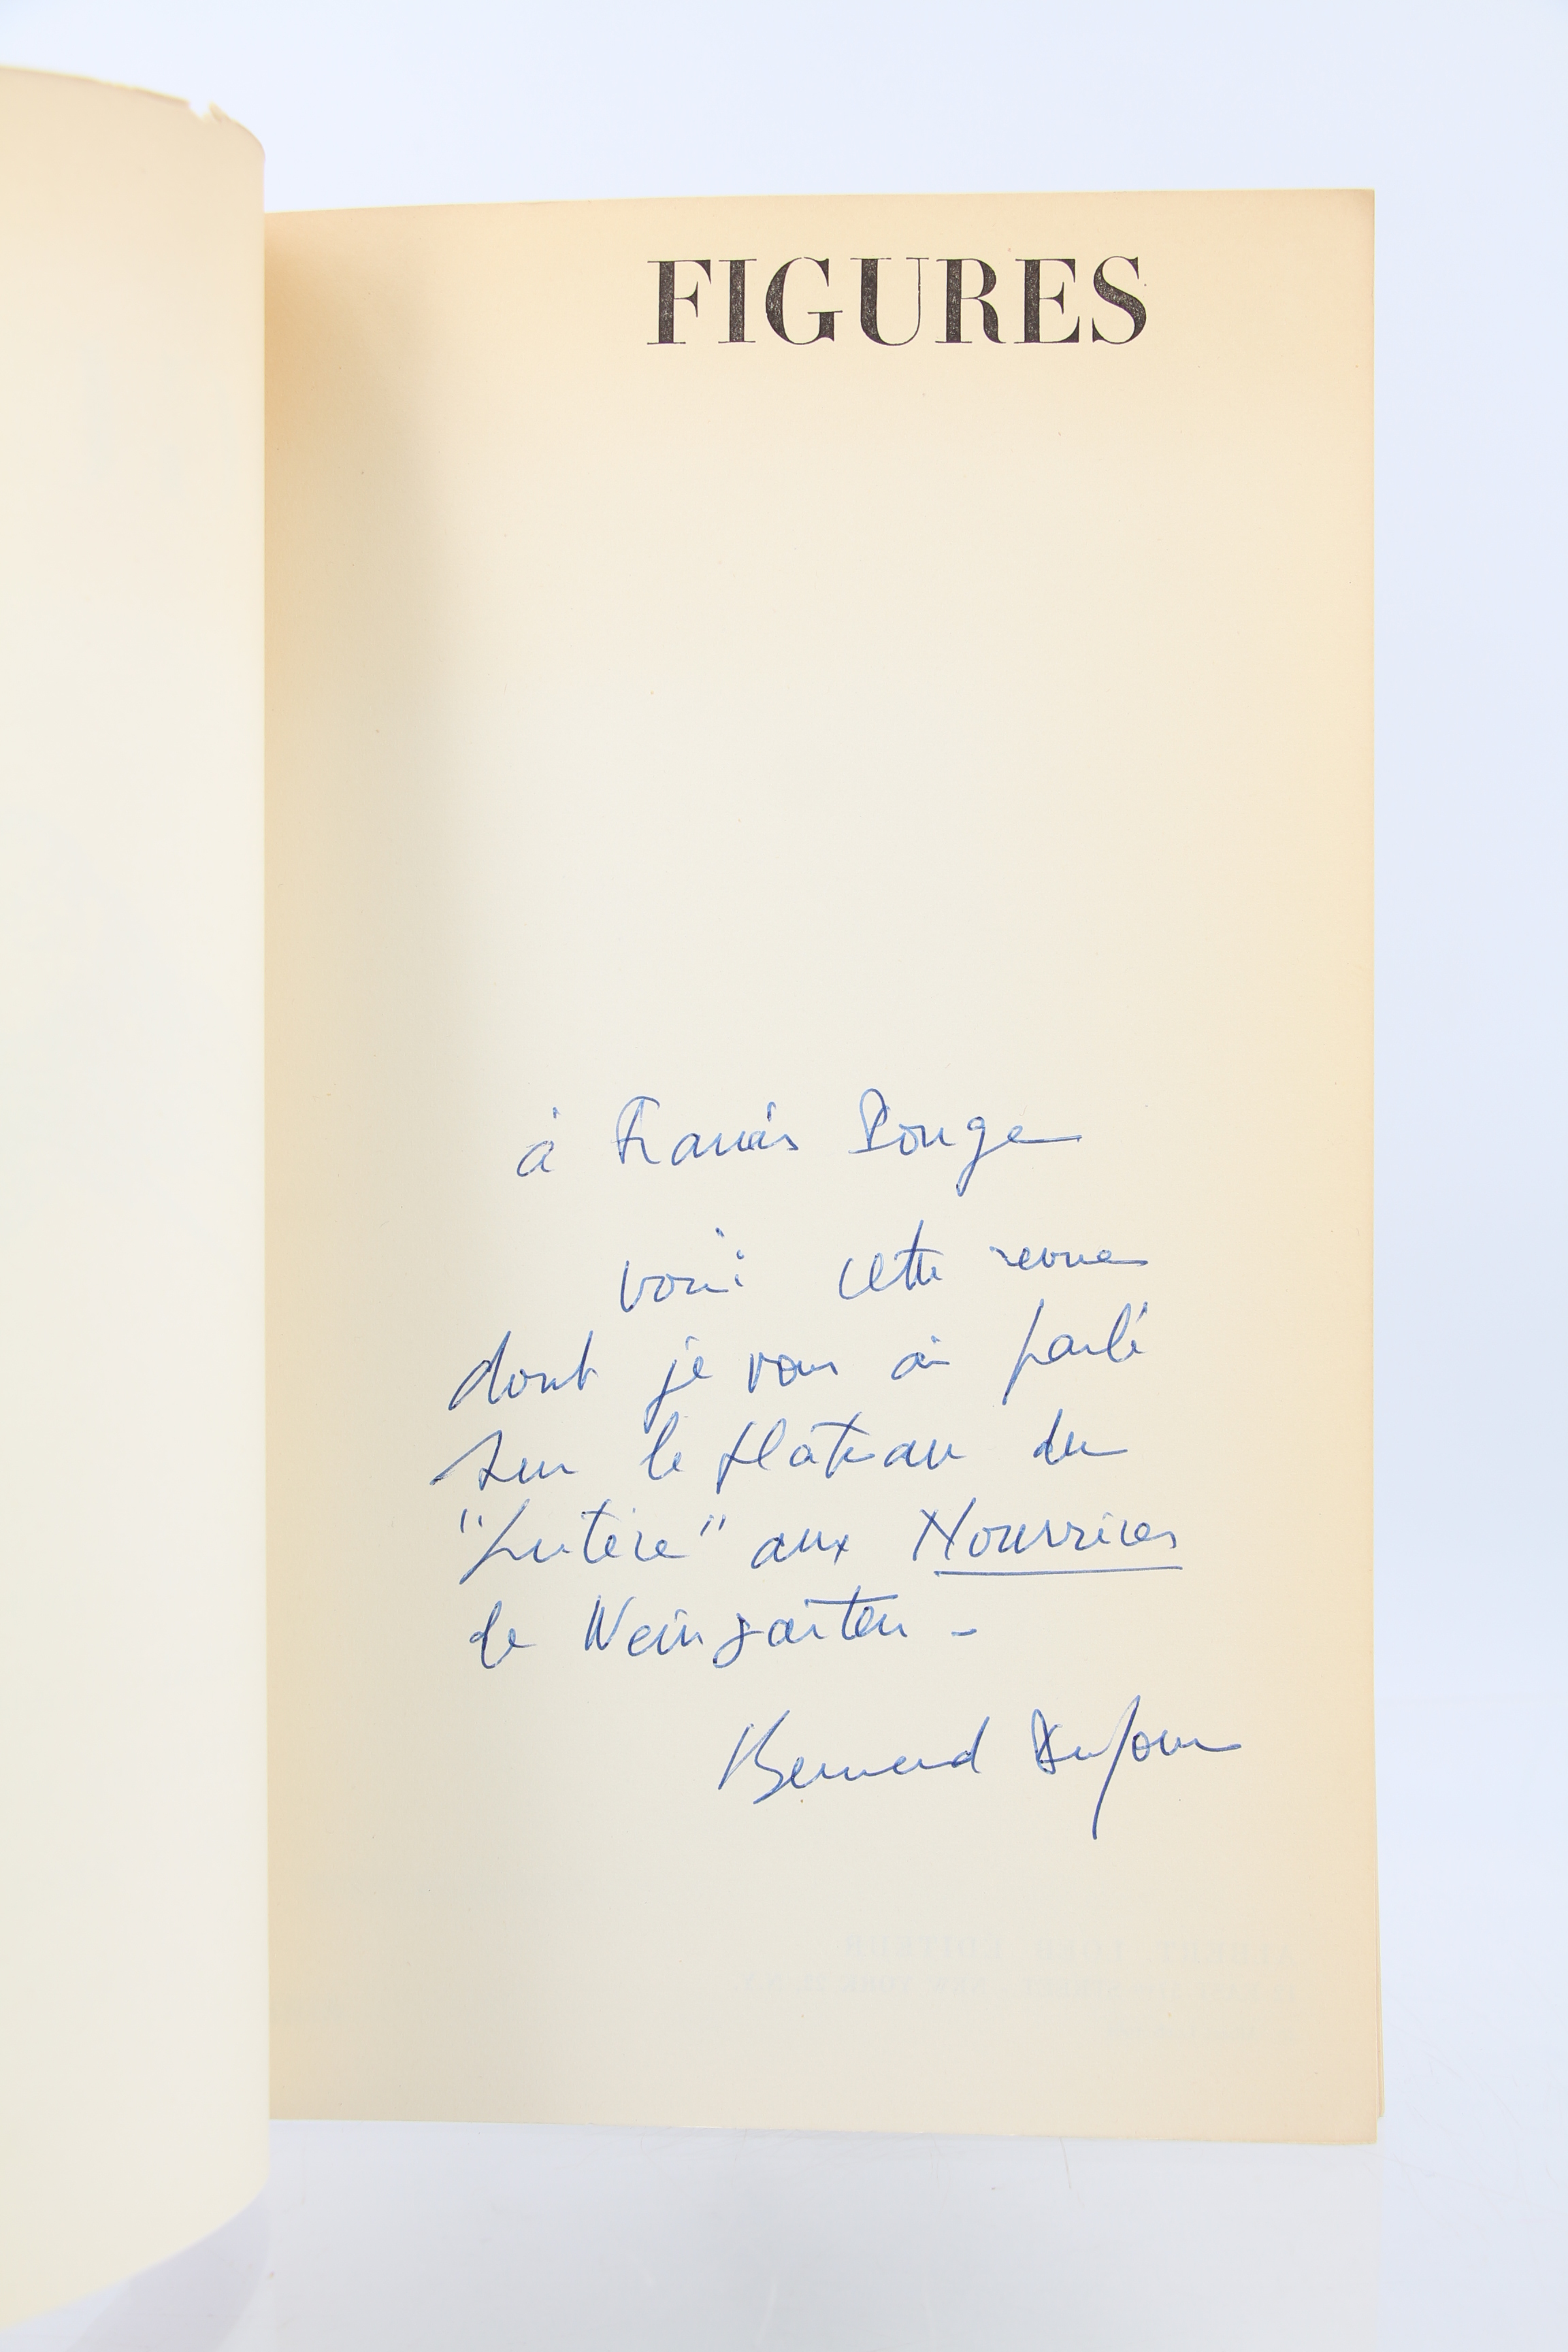 FIGURES
à Francis Ponge
voici cette revue
dont je vous ai parlé
sur le plateau du
"Lutèce" aux Nourrices
de Weingarten -
Bernard Dufour